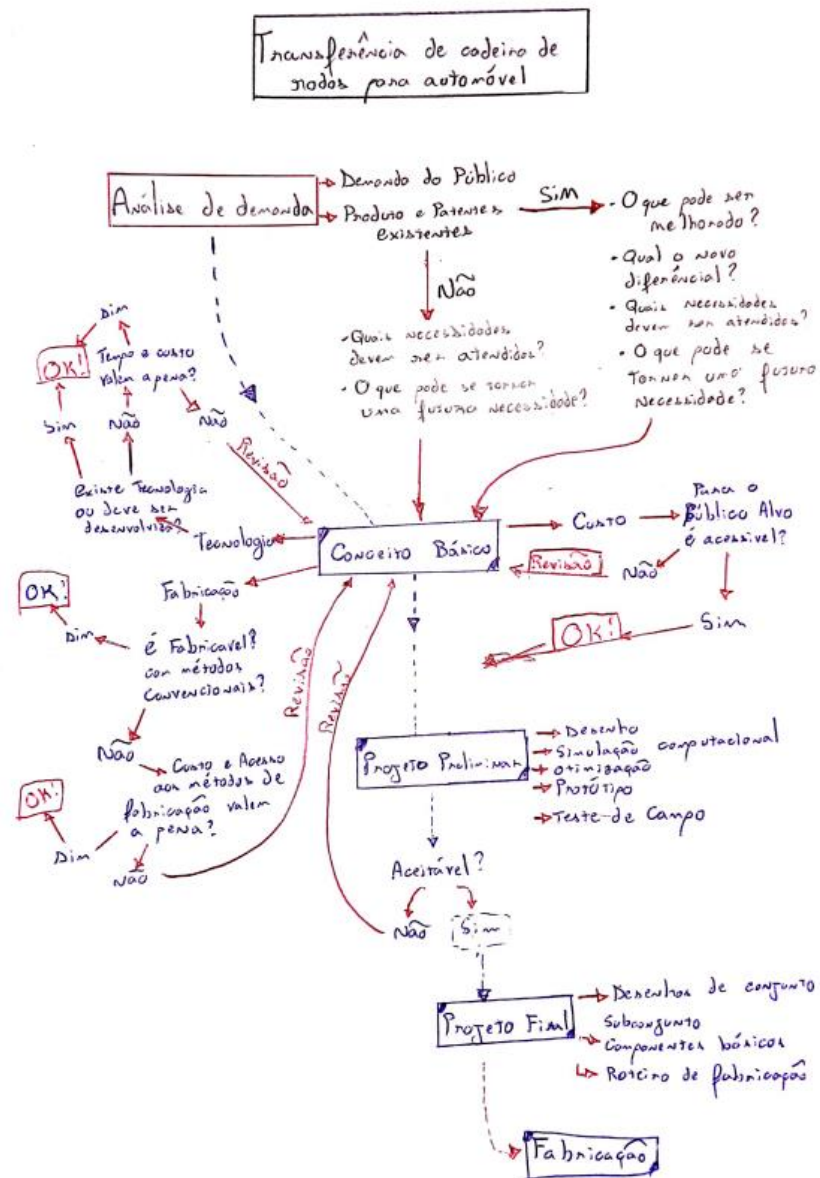 Transferência de cadeira de
rodas para automóvel
Análise de demanda
Demanda do Público
Produto e Patentes
existentes
Sim
- O que pode ser
melhorado?
• Qual o novo
diferêncial?
• Quais necessidades
devem ser atendidas?
• O que pode se
tornar uma futura
necessidade?
Não
- Quais necessidades
devem ser atendidas?
- O que pode se tornar
uma futura necessidade?
Sim
OK!
Tempo e custo
valem a pena?
Sim
Não
Não
Revisão
Existe Tecnologia
ou deve ser
desenvolvida?
Tecnologia
Conceito Básico
Custo
Para o
Público Alvo
é acessivel?
Revisão
Não
Sim
OK!
Fabricação
OK!
Sim
é Fabricavel?
com métodos
convencionais?
Não
Custo e Acesso
aos métodos de
fabricação valem
a pena?
OK!
Sim
Não
Revisão
Revisão
Projeto Preliminar
Desenho
Simulação computacional
Otimização
Protótipo
Teste de Campo
Aceitável?
Não
Sim
Projeto Final
Desenhos de conjunto
Subconjunto
Componentes básicos
Roteiro de fabricação
Fabricação